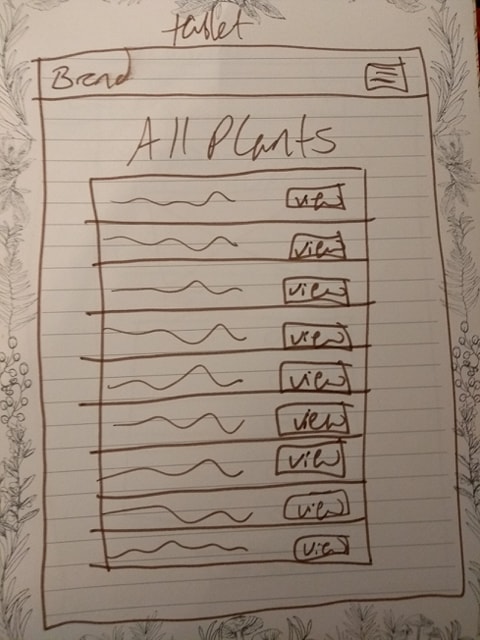 tablet
Brand
All Plants
view
view
view
view
view
view
view
view
view